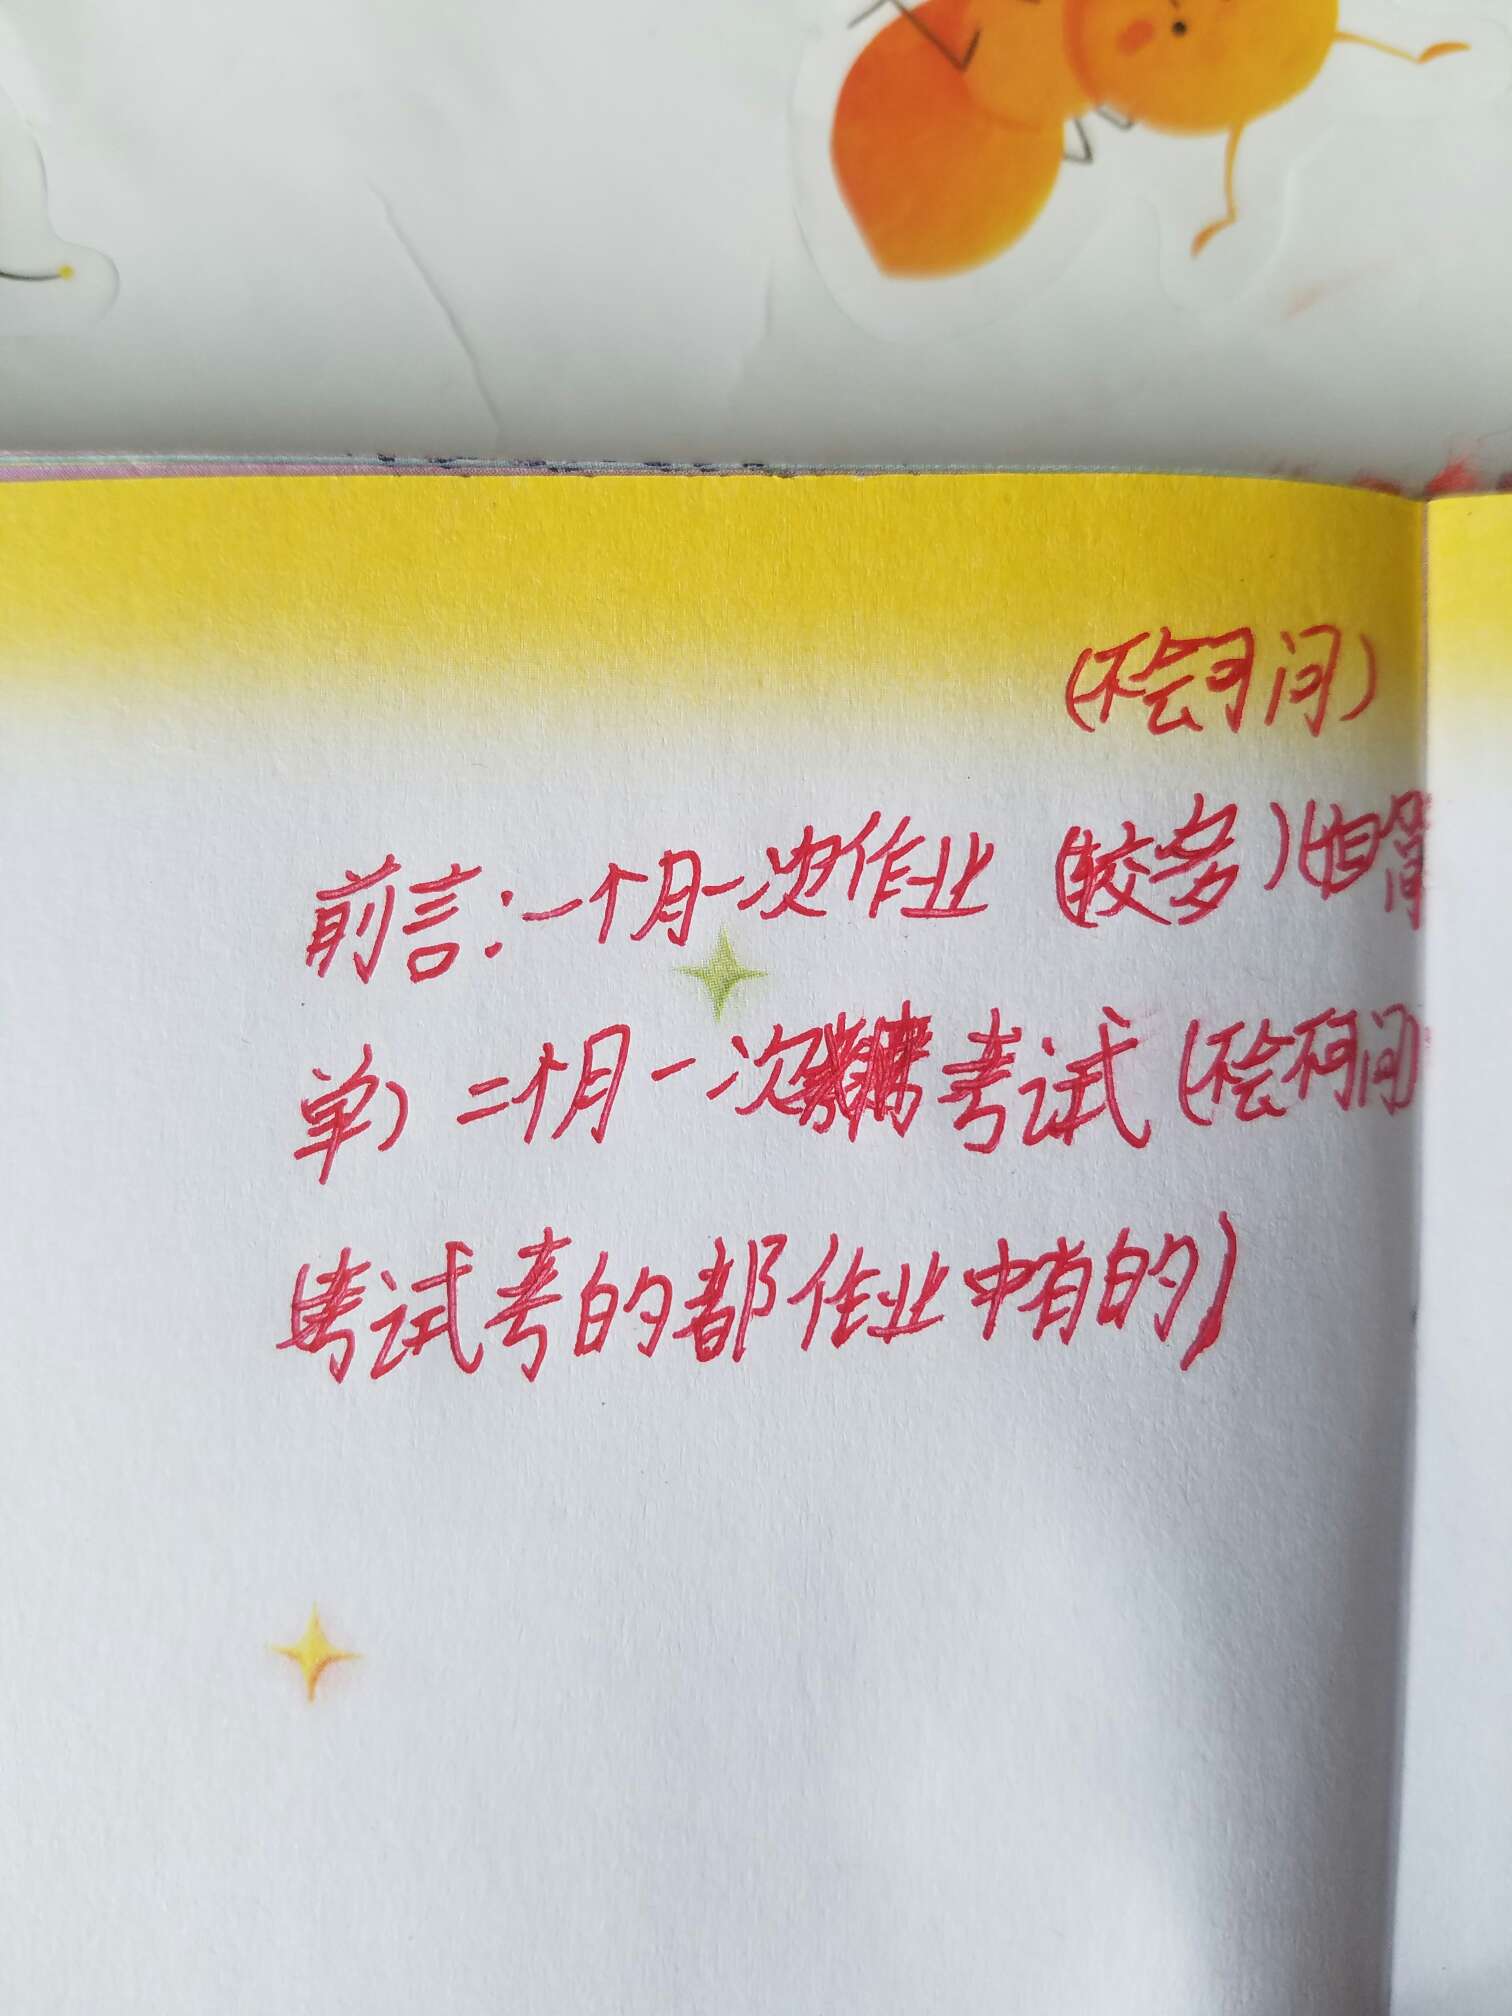 (不会可问)
前言:一个月一次作业(较多)(但简
单)二个月一次考试(不会不可问
考试考的都作业中有的)